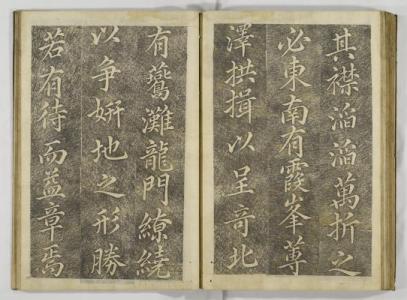 其襟滔滔萬折之
必東南有霞峯蓴
澤拱揖以呈奇北
有鷰灘龍門繚繞
以争妍地之形勝
若有待而益章焉